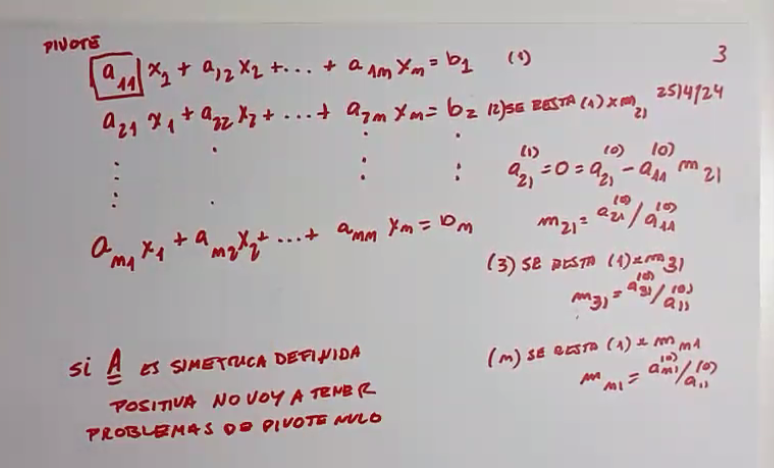 PIVOTE
a11 x1 + a12 x2 + ... + a1m xm = b1 (1)
3
25/4/24
a21 x1 + a22 x2 + ... + a2m xm = b2 (2) SE RESTA (1) x m21
a21(1) = 0 = a21(0) - a11(0) m21
m21 = a21(0) / a11(0)
am1 x1 + am2 x2 + ... + amm xm = bm
(3) SE RESTA (1) x m31
m31 = a31(0) / a11(0)
(m) SE RESTA (1) x mm1
mm1 = am1(0) / a11(0)
SI A ES SIMETRICA DEFINIDA
POSITIVA NO VOY A TENER
PROBLEMAS DE PIVOTE NULO